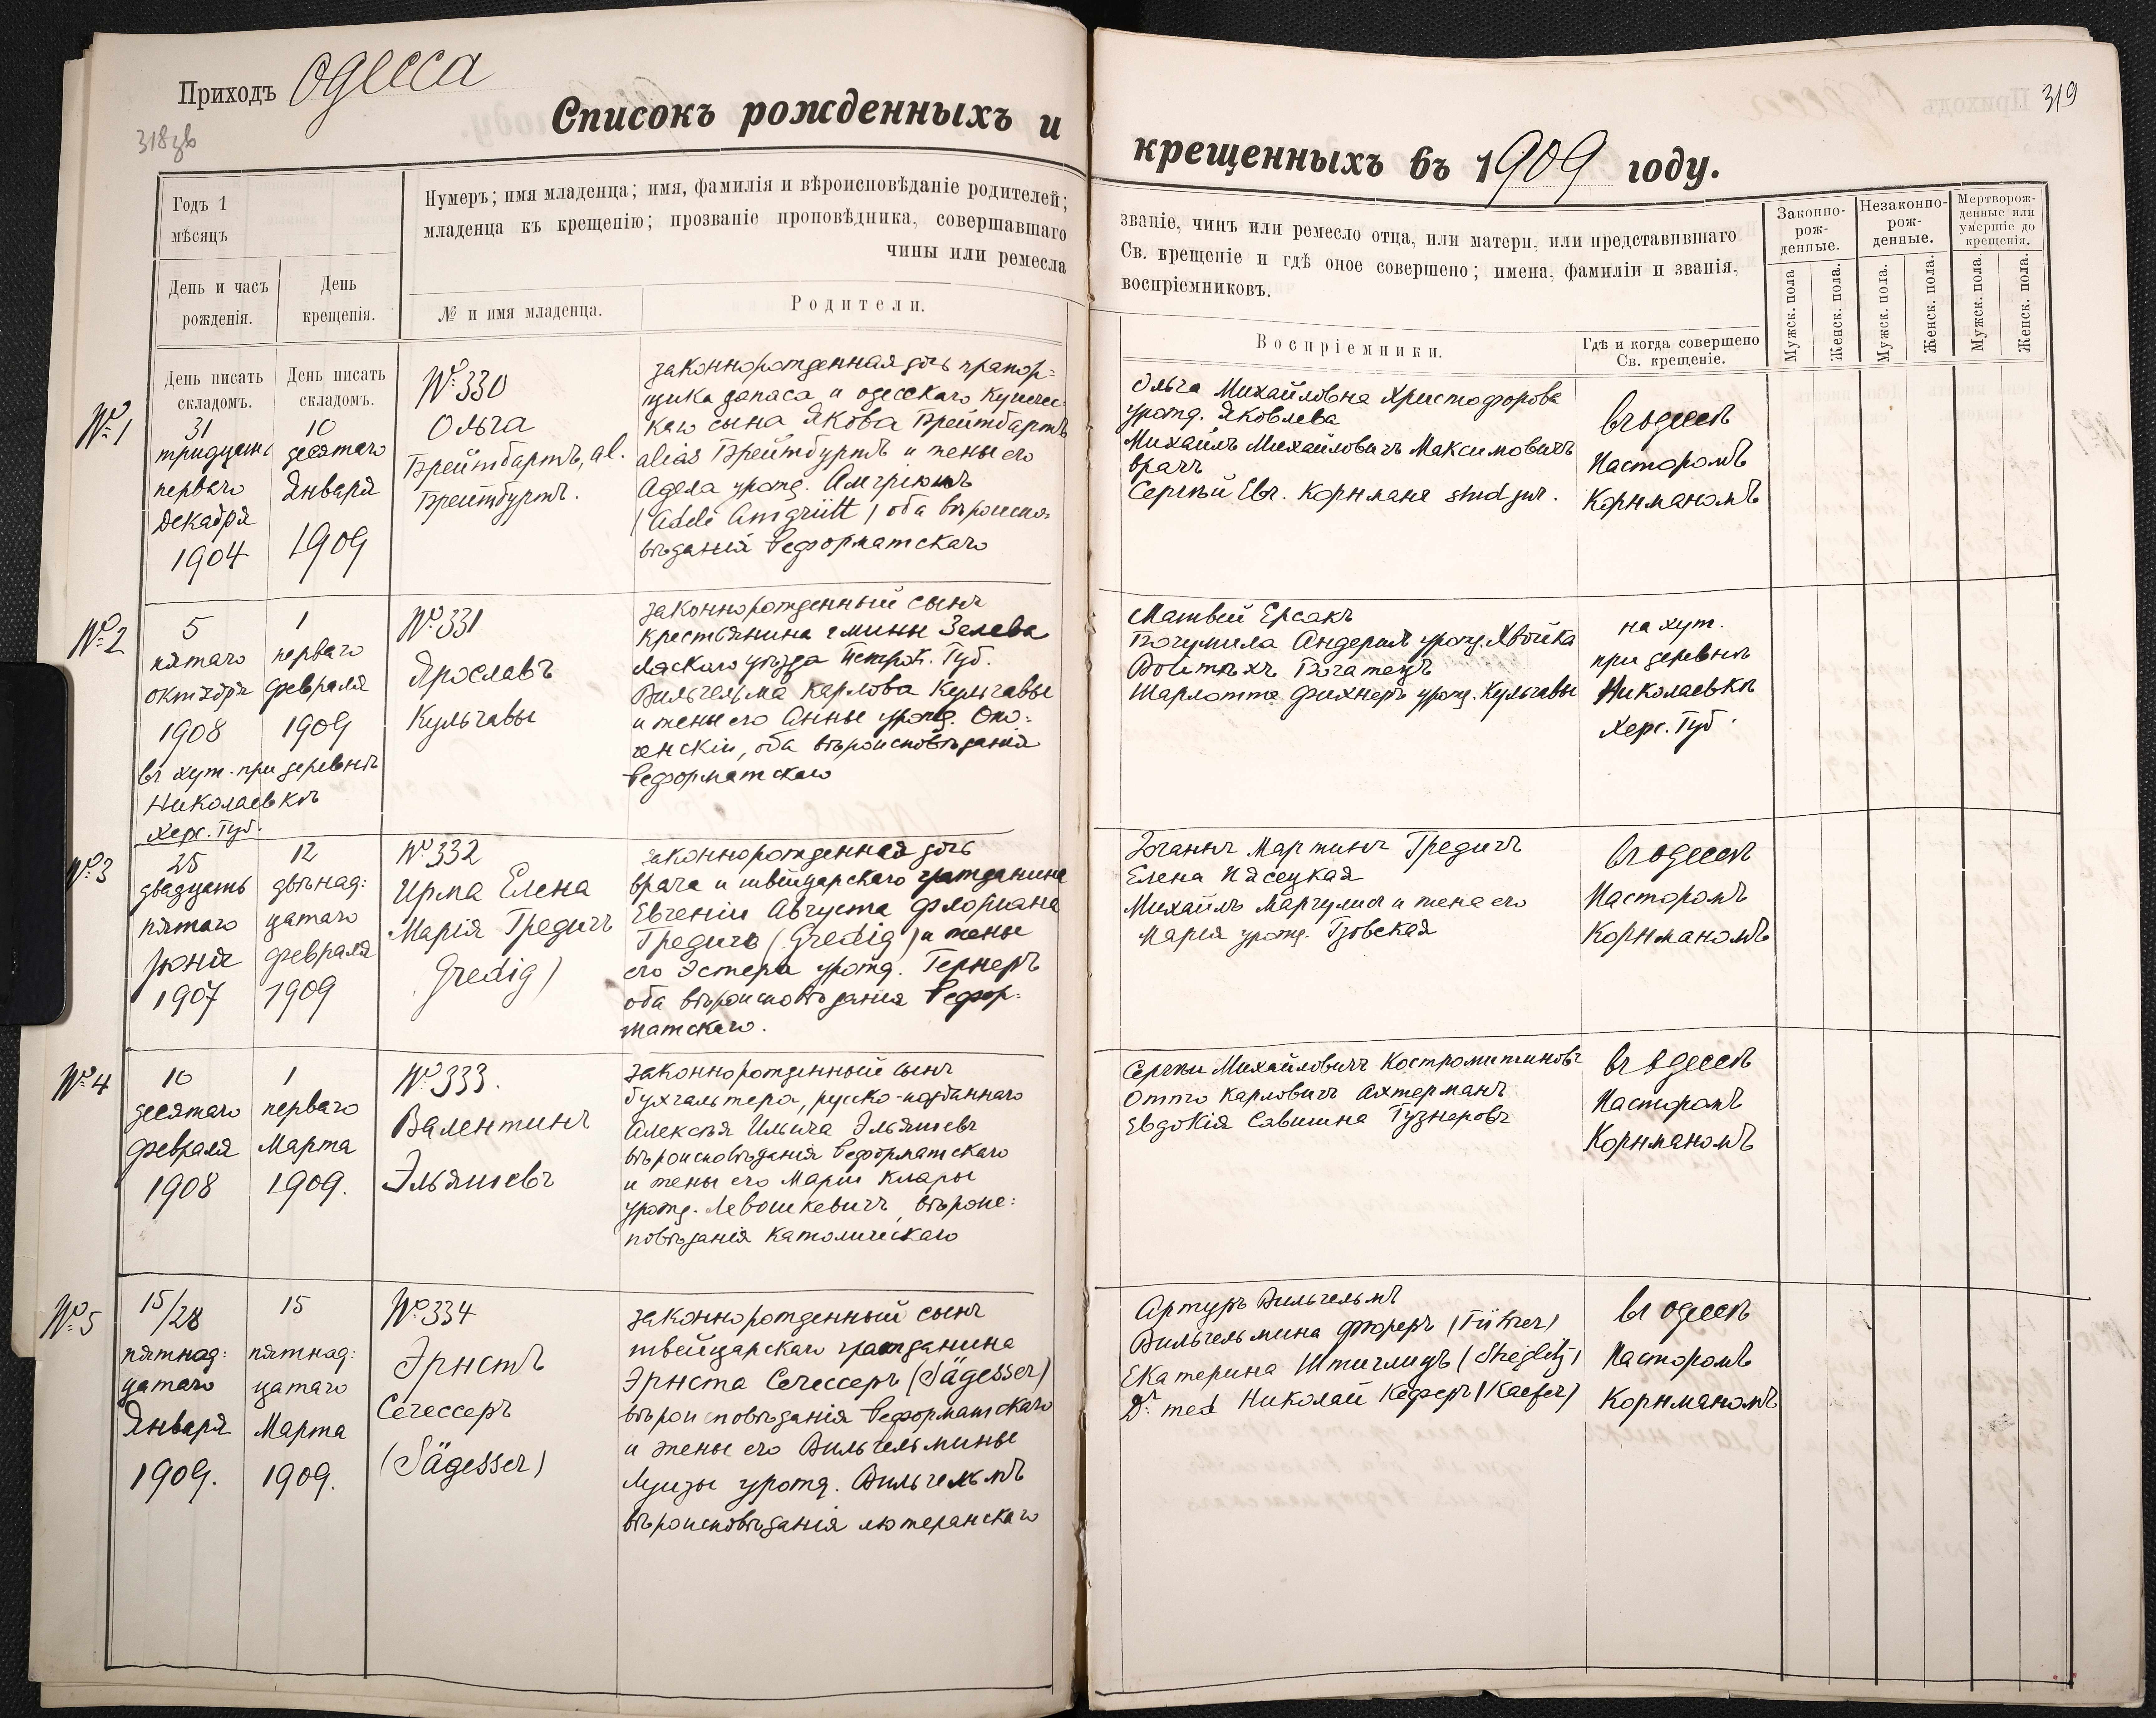 Приходъ Одесса
318зв
319
Списокъ рожденныхъ и крещенныхъ въ 1909 году.
Годъ 1
мѣсяцъ
День и часъ
рожденія.
День
крещенія.
Нумеръ; имя младенца; имя, фамилія и вѣроисповѣданіе родителей;
младенца къ крещенію; прозваніе проповѣдника, совершавшаго
чины или ремесла
№ и имя младенца.
Родители.
званіе, чинъ или ремесло отца, или матери, или представившаго
Св. крещеніе и гдѣ оное совершено; имена, фамиліи и званія,
воспріемниковъ.
Воспріемники.
Гдѣ и когда совершено
Св. крещеніе.
Законно-
рож-
денные.
Незаконно-
рож-
денные.
Мертворож-
денные или
умершіе до
крещенія.
Мужск. пола
Женск. пола.
Мужск. пола.
Женск. пола.
Мужск. пола.
Женск. пола.
День писать
складомъ.
День писать
складомъ.
№1
31
тридцать
перваго
Декабря
1904
10
десятаго
Января
1909
№ 330
Ольга
Брейтбартъ, al.
Брейтбуртъ.
законнорожденная дочь прапор=
щика запаса и одесскаго купечес-
каго сына Якова Брейтбартъ
alias Брейтбуртъ и жены его
Адела урожд. Амгрютъ
(Adele Amgrütt) оба вѣроиспо-
вѣданія Реформатскаго
Ольга Михайловна Христофорова
урожд. Яковлева
Михаилъ Михайловичъ Максимовичъ
врачъ
Сергѣй Евг. Корнманъ stud jur.
въ Одессѣ
Пасторомъ
Корнманомъ
№2
5
пятаго
октября
1908
въ хут. при деревнѣ
Николаевкѣ
Херс. Губ.
1
перваго
февраля
1909
№ 331
Ярославъ
Кульгавы
законнорожденный сынъ
крестьянина гмины Зелева
Ласкаго уѣзда Петрок. Губ.
Вильгельма Карлова Кульгавы
и жены его Анны урожд. Опо=
ченскіи, оба вѣроисповѣданія
Реформатскаго
Матвѣй Ерсакъ
Богумила Андершъ урожд. Явойка
Войтѣхъ Богатецъ
Шарлотта Фихнеръ урожд. Кульгавы
на хут.
при деревнѣ
Николаевкѣ
Херс. Губ.
№3
25
двадцать
пятаго
Іюня
1907
12
двѣнад:
цатаго
февраля
1909
№ 332
Ирма Елена
Марія Гредигъ
Gredig)
законнорожденная дочь
врача и швейцарскаго гражданина
Евгенія Августа Флоріана
Гредигъ (Gredig) и жены
его Эстера урожд. Гернеръ
оба вѣроисповѣданія Рефор:
матскаго.
Іоганнъ Мартинъ Гредигъ
Елена Пясецкая
Михаилъ Маргулисъ и жена его
Марія урожд. Гзовская
въ Одессѣ
Пасторомъ
Корнманомъ
№4
10
десятаго
февраля
1908
1
перваго
Марта
1909.
№ 333.
Валентинъ
Эльяшевъ
законнорожденный сынъ
бухгалтера, русско-подданнаго
Алексѣя Ильича Эльяшевъ
вѣроисповѣданія Реформатскаго
и жены его Маріи Клары
урожд. Левошкевичъ, вѣроис:
повѣданія католическаго
Сергѣй Михайловичъ Костромитиновъ
Отто Карловичъ Ахтерманъ
Евдокія Савишна Гузнеровъ
въ Одессѣ
Пасторомъ
Корнманомъ
№5
15/28
пятнад:
цатаго
Января
1909.
15
пятнад:
цатаго
Марта
1909.
№ 334
Эрнстъ
Сегессеръ
(Sägesser)
законнорожденный сынъ
швейцарскаго гражданина
Эрнста Сегессеръ (Sägesser)
вѣроисповѣданія Реформатскаго
и жены его Вильгельмины
Луизы урожд. Вильгельмъ
вѣроисповѣданія лютеранскаго
Артуръ Вильгельмъ
Вильгельмина Фюреръ (Führer)
Екатерина Штиглицъ (Stieglitz)
Dr. med Николай Кеферъ (Kaefer)
въ Одессѣ
Пасторомъ
Корнманомъ